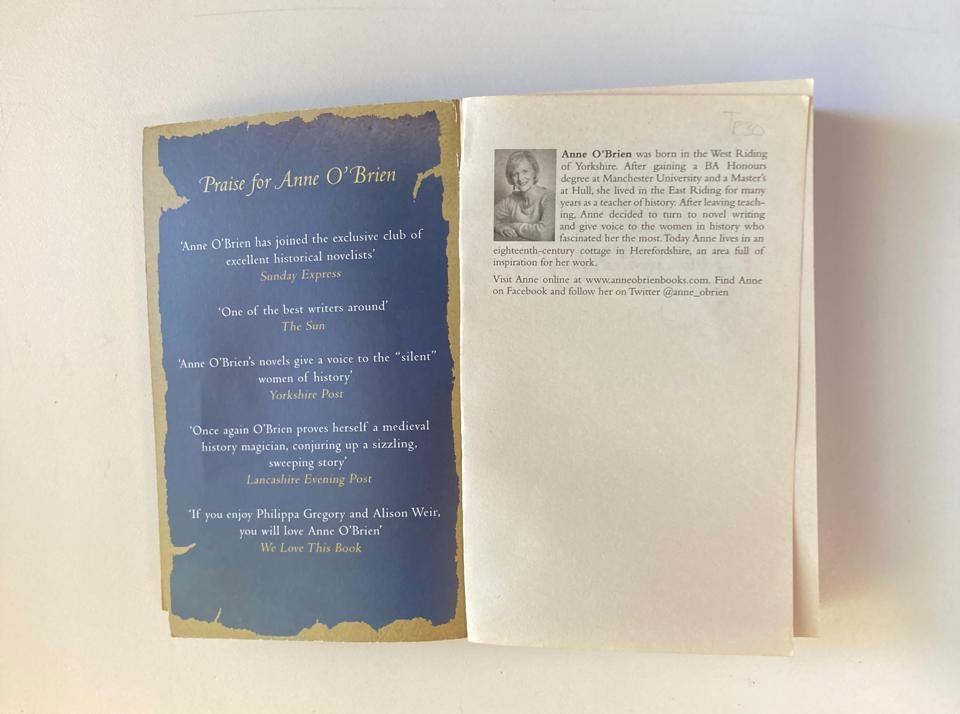 Praise for Anne O'Brien
'Anne O'Brien has joined the exclusive club of
excellent historical novelists'
Sunday Express
'One of the best writers around'
The Sun
'Anne O'Brien's novels give a voice to the "silent"
women of history'
Yorkshire Post
'Once again O'Brien proves herself a medieval
history magician, conjuring up a sizzling,
sweeping story'
Lancashire Evening Post
'If you enjoy Philippa Gregory and Alison Weir,
you will love Anne O'Brien'
We Love This Book
Anne O'Brien was born in the West Riding
of Yorkshire. After gaining a BA Honours
degree at Manchester University and a Master's
at Hull, she lived in the East Riding for many
years as a teacher of history. After leaving teach-
ing, Anne decided to turn to novel writing
and give voice to the women in history who
fascinated her the most. Today Anne lives in an
eighteenth-century cottage in Herefordshire, an area full of
inspiration for her work.
Visit Anne online at www.anneobrienbooks.com. Find Anne
on Facebook and follow her on Twitter @anne_obrien